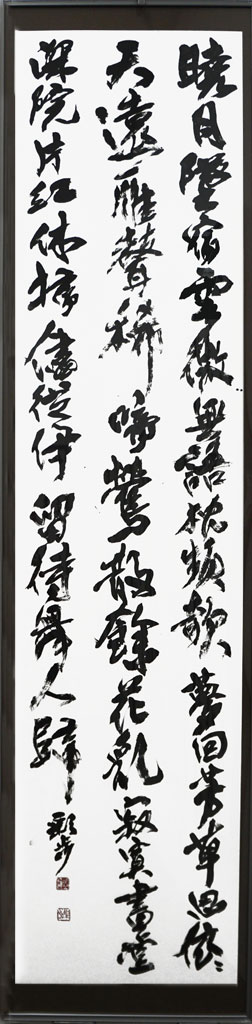 曉月墜宿雲微無語枕頻欹夢回芳草思依〻
天遠雁聲稀啼鶯散餘花亂寂寞畫堂
深院片紅休掃儘從伊留待舞人歸